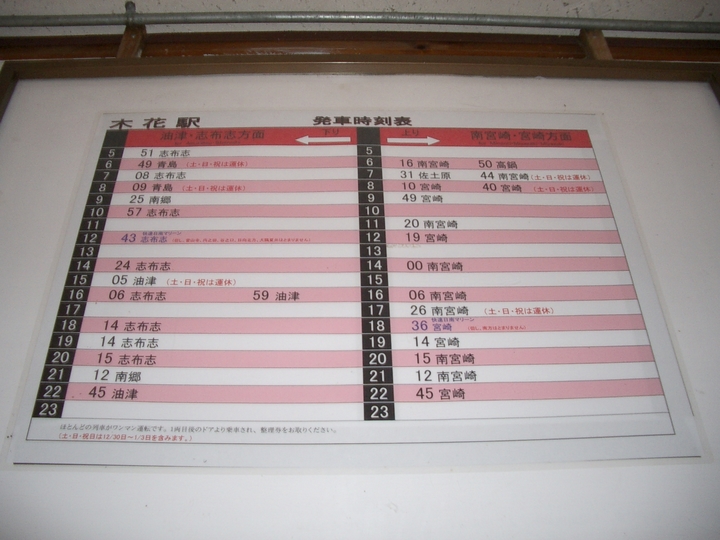 木花駅 発車時刻表
油津・志布志方面 下り 上り 南宮崎・宮崎方面
5 51 志布志 5
6 49 青島 (土・日・祝は運休) 6 16 南宮崎 50 高鍋
7 08 志布志 7 31 佐土原 44 南宮崎 (土・日・祝は運休)
8 09 青島 (土・日・祝は運休) 8 10 宮崎 40 宮崎 (土・日・祝は運休)
9 25 南郷 9 49 宮崎
10 57 志布志 10
11 11 20 南宮崎
12 快速日南マリーン 43 志布志 12 19 宮崎
13 13
14 24 志布志 14 00 南宮崎
15 05 油津 (土・日・祝は運休) 15
16 06 志布志 59 油津 16 06 南宮崎
17 17 26 南宮崎 (土・日・祝は運休)
18 14 志布志 18 快速日南マリーン 36 宮崎
19 14 志布志 19 14 宮崎
20 15 志布志 20 15 南宮崎
21 12 南郷 21 12 南宮崎
22 45 油津 22 45 宮崎
23 23
ほとんどの列車がワンマン運転です。1両目後のドアより乗車され、整理券をお取りください。
(土・日・祝日は12/30日~1/3日を含みます。)